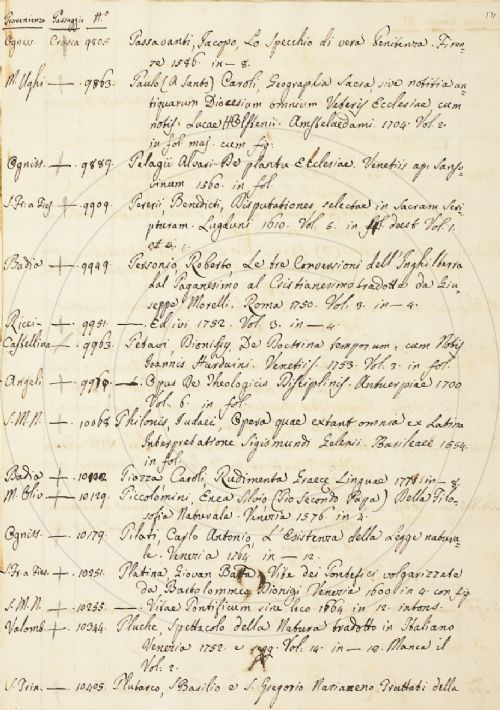 Provenienza Passaggio N.o
Ogniss. Crusca 9805. Passavanti, Jacopo, Lo Specchio di vera Penitenza. Firen-
ze 1586. in — 8.
M. Ughi — 9863. Paulo (A Santo) Caroli, Geographia Sacra, sive notitia an-
tiquarum Dioecesium omnium Veteris Ecclesiae cum
notis Lucae Holstenii. Amstelaedami 1704. Vol. 2.
in fol. maj. cum fig.
Ogniss. — 9889. Pelagii Alvari De planctu Ecclesiae. Venetiis ap. Sanso-
vinum 1560. in fol.
9909. Pererii, Benedicti, Disputationes selectae in Sacram Scri-
pturam. Lugduni 1610. Vol. 5. in deest Vol. 1.
et 4.
Badia — 9949. Personio, Roberto, Le tre Conversioni dell'Inghilterra
dal Paganesimo al Cristianesimo tradotte da Giu-
seppe Morelli. Roma 1750. Vol. 3. in — 4.
Ricci — 9951. — Ed ivi 1752. Vol. 3. in — 4.
Castellina — 9963. Petavi Dionisii, De Doctrina temporum, cum Notis
Joannis Harduini. Venetiis. 1753. Vol. 3. in fol.
Angeli — — Opus De Theologicis Disciplinis. Antuerpiae 1700
Vol. 6. in fol.
S. M. N. — 10068 Philonis Iudaei, Opera quae extant omnia ex Latina
Interpretatione Sigismundi Gelenii. Basileae 1554.
in fol.
Badia Piazza Caroli, Rudimenta Graece Linguae in — 8.
M. Oliv — 10129. Piccolomini, Enea Silvio (Pio Secondo Papa) Della Filo-
sofia Naturale. Venezia 1576 in 4.
Ogniss — 10179. Pilati, Carlo Antonio, L'Esistenza della Legge natura-
le. Venezia 1764. in — 12.
10251. Platina Giovan Batta. Vite dei Pontefici volgarizzate
da Bartolommeo Dionigi Venezia in 4. con fig.
S. M. N. — 10255. — Vitae Pontificum sine loco 1664 in 12. intons.
Valomb — 10344. Pluche, Spettacolo della Natura tradotto in Italiano
Venezia 1752. e seg. Vol. 14. in — 12. Manca il
Vol. 2.
S. Trin. — 10405. Plutarco, S. Basilio e S. Gregorio Nazianzeno Trattati della